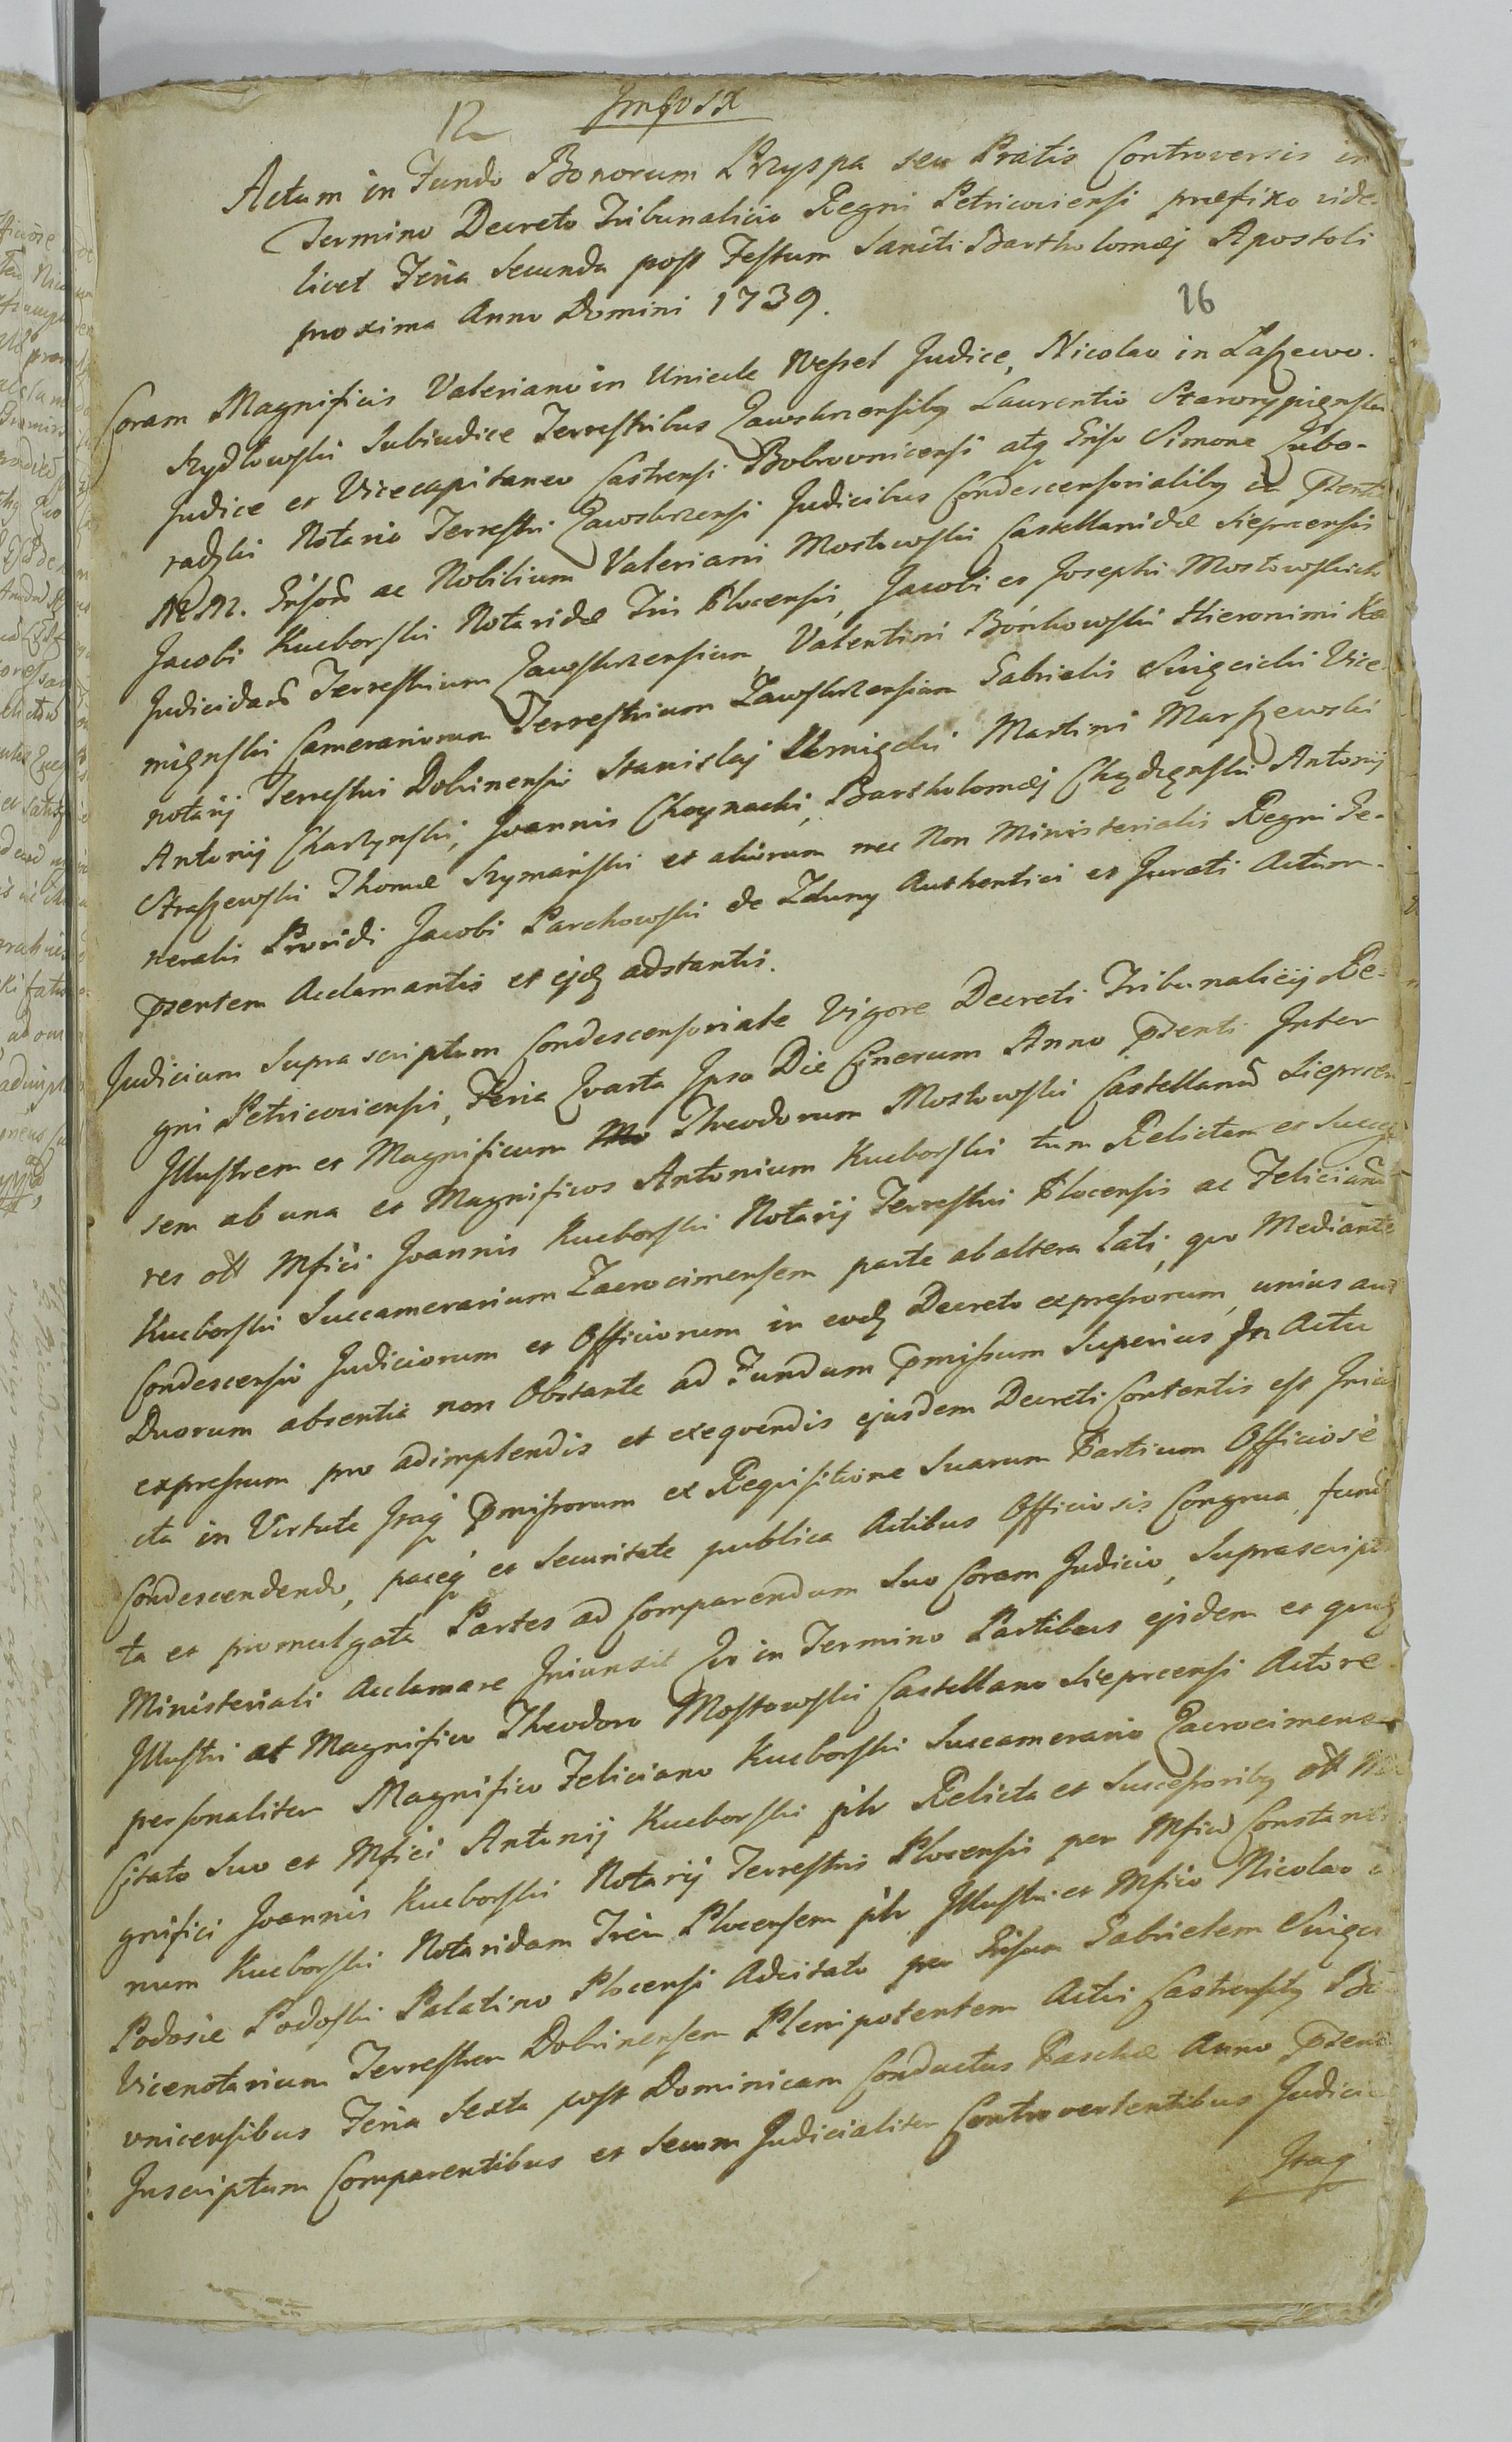 12
Actum in Fundo Bonorum Przyspa seu Pratis Controversis in
Termino Decreto Tribunalicio Regni Petricoviensi præfixo vide-
licet Feria Secunda post Festum Sancti Bartholomæj Apostoli
proxima Anno Domini 1739.
26
Coram Magnificis Valeriano in Unieck Wessel Judice, Nicolao in Laszewo
Szydłowski Subiudice Terrestribus Zawskrzensibq Laurentio Starorypięnski
Judice et Vicecapitaneo Castrensi Bobrovnicensi atq Grso Simone Lubo-
radzki Notario Terrestri Zawskrzensi Judicibus Condescensorialibq in Pzentia
M.M. Grsorũ ac Nobilium Valeriani Mostowski Castellanidæ Sieprcensis
Jacobi Kucborski Notaridæ Tris Plocensis, Jacobi et Josephi Mostowskich
Judicidarũ Terrestrium Zawskrzensium Valentini Bońkowski Hieronimi Ka
mięnski Camerariorum Terrestrium Zawskrzensium Gabrielis Swięcicki Vice
notarij Terrestris Dobrinensis Stanislaj Uvnięcki Martini Marszewski
Antonij Charzynski, Joannis Choynacki, Bartholomæj Chądzęnski Antonij
Straszewski Thomæ Szymański et aliorum nec Non Ministerialis Regni Ge-
neralis Providi Jacobi Parchowski de Zduny Authentici et Jurati Actum
pzentem Acclamantis et ejdq adstantis.
Judicium Suprascriptum Condescensoriale Vigore Decreti Tribunalicij Re-
gni Petricoviensis, Feria Qvarta Ipso Die Cinerum Anno pzenti Inter
Illustrem et Magnificum Theodorum Mostowski Castellanũ Sieprcen
sem ab una et Magnificos Antonium Kucborski tum Relictam et Succesſo
res olĩ Mfici Joannis Kucborski Notarij Terrestris Plocensis ac Felicianũ
Kucborski Succamerarium Zacrocimensem parte ab altera Lati, quo Mediante
Condescensio Judiciorum et Officiorum in eodq Decreto expressorum, unius aut
Duorum absentia non Obstante ad Fundum pmissum Superius In Actu
expressum pro adimplendis et exeqvendis ejusdem Decreti Contentis est Iniun
cta in Virtute Itaq pmissorum ex Reqvisitione Suarum Partium Officiosè
Condescendendo, paceq et Securitate publica Actibus Officiosis Congrua funda
ta et promulgata Partes ad Comparendum Suo Coram Judicio, Suprascripto
Ministeriali Acclamare Iniunxit Qvo in Termino Partibus ejsdem et quidq
Illustri at Magnifico Theodoro Mostowski Castellano Sieprcensi Actore
personaliter Magnifico Feliciano Kucborski Succamerario Zacrocimensi
Citato Suo et Mfici Antonij Kucborski pltr Relicta et Successoribq olĩ Ma
gnifici Joannis Kucborski Notarij Terrestris Plocensis per Mficũ Constanti
num Kucborski Notaridam Trem Plocensem pltr Illustri et Mfico Nicolao in
Podosie Podoski Palatino Plocensi Adcitato per Grsum Gabrielem Swięci
Vicenotarium Terrestrem Dobrinensem Plenipotentem Actis Castrensibq Bo
vnicensibus Feria Sexta post Dominicam Conductus Paschæ Anno pzenti
Inscriptum Comparentibus et Secum Judicialiter Controvertentibus Judiciu
Itaq